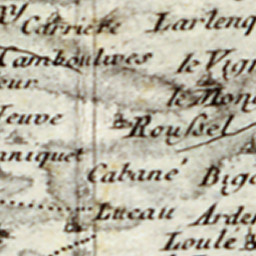 Carriere Larlenq
Camboulives le Vign
eur
le Mon
Neuve Roussel
aniquet
Cabané Biga
Lucau Arden
Loulé